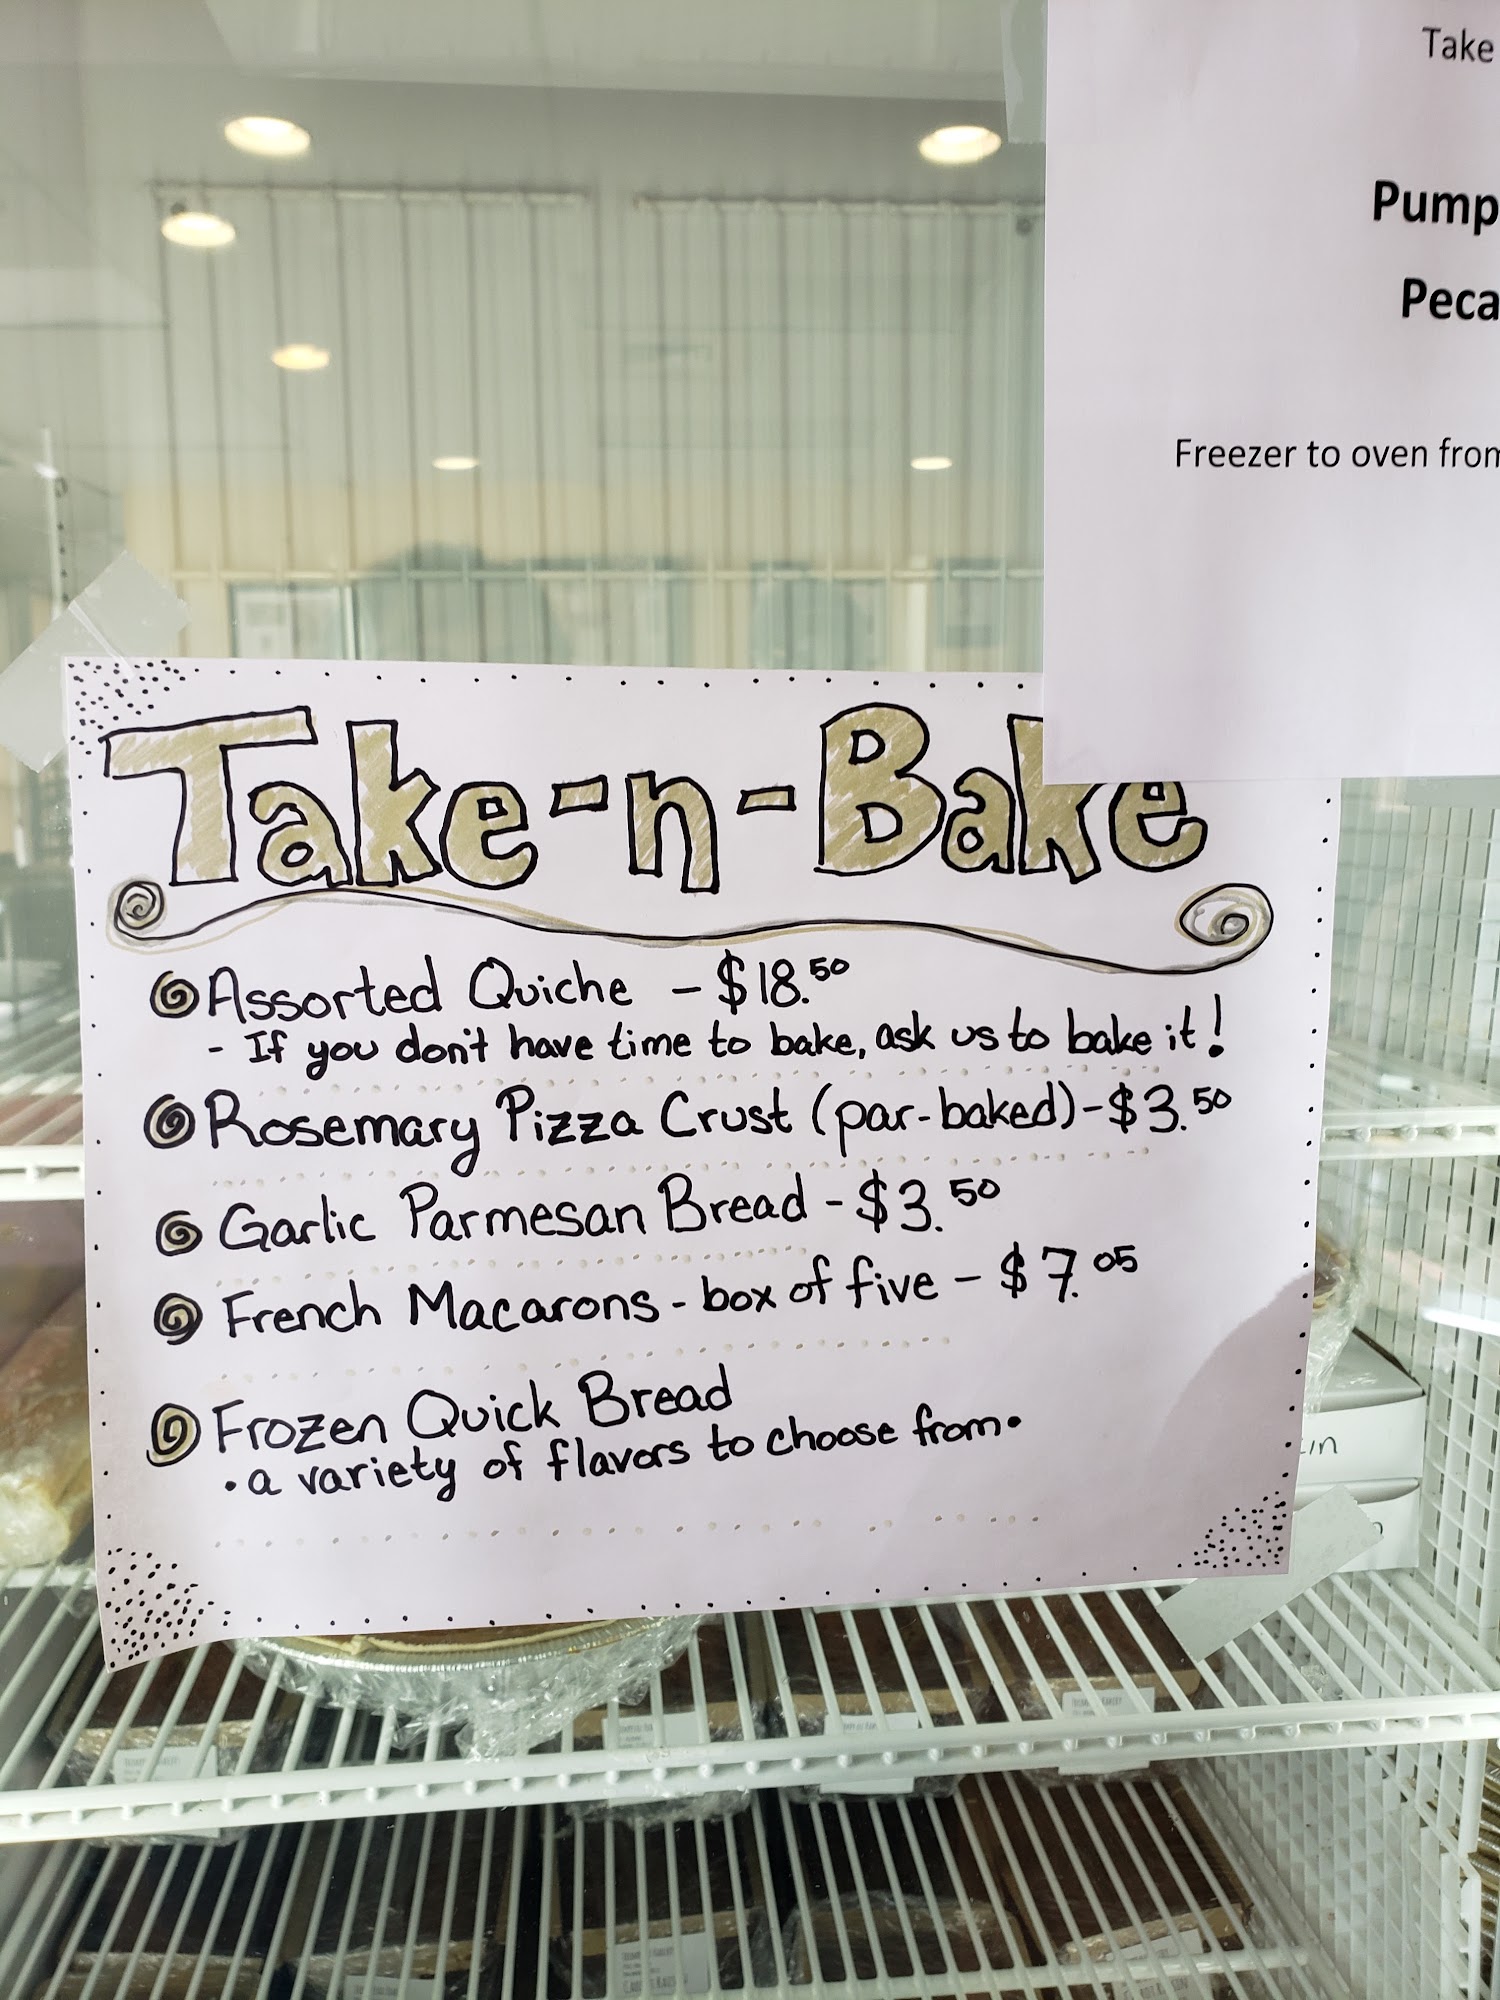 Take
Pump
Peca
Freezer to oven from
Take-n-Bake
Assorted Quiche - $18.50
- If you don't have time to bake, ask us to bake it!
Rosemary Pizza Crust (par-baked) - $3.50
Garlic Parmesan Bread - $3.50
French Macarons - box of five - $7.05
Frozen Quick Bread
• a variety of flavors to choose from.